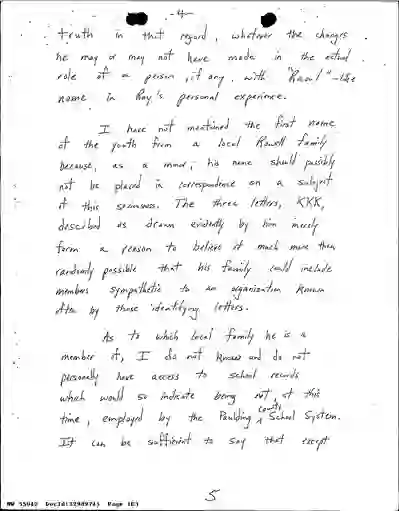 truth in that regard, whatever the changes
he may or may not have made in the actual
role of a person, if any, with "Raoul"-like
name in Ray's personal experience.
I have not mentioned the first name
of the youth from a local Rowell family
because, as a minor, his name should possibly
not be placed in correspondence on a subject
of this seriousness. The three letters, KKK,
described as drawn evidently by him merely
form a reason to believe it much more than
randomly possible that his family could include
members sympathetic to an organization known
often by those identifying letters.
As to which local family he is a
member of, I do not know and do not
personally have access to school records
which would so indicate being not, at this
time, employed by the Paulding County School System.
It can be sufficient to say that except
5
NW 55042 DocId:32989745 Page 103